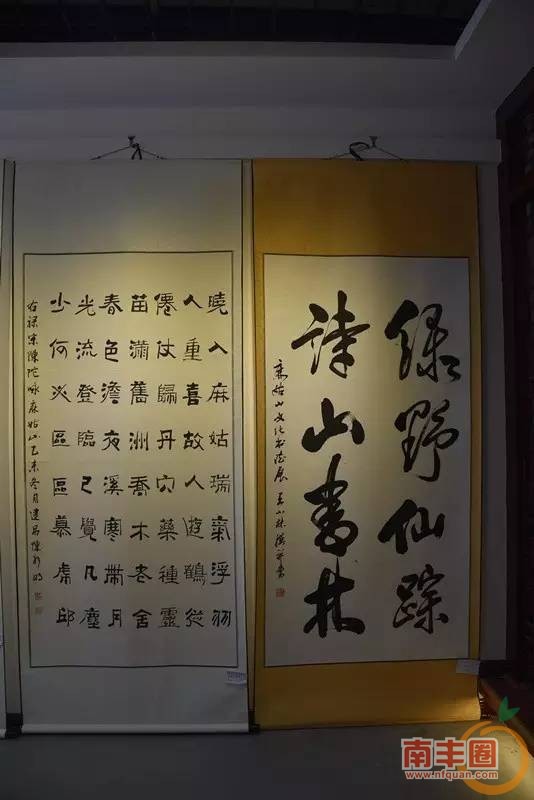 绿野仙踪
诗山書林
麻姑山文化书法展
曉入麻姑瑞氣浮羽
人重喜故人遊鶴從
僊仗歸丹穴藥種靈
苗滿舊洲喬木老舍
春色澹夜溪寒帶月
光流登臨已覺凡塵
少何必區區慕虎邱
右録宋陳陀咏麻姑山乙未冬月建昌陳
南丰圈
www.nfquan.com